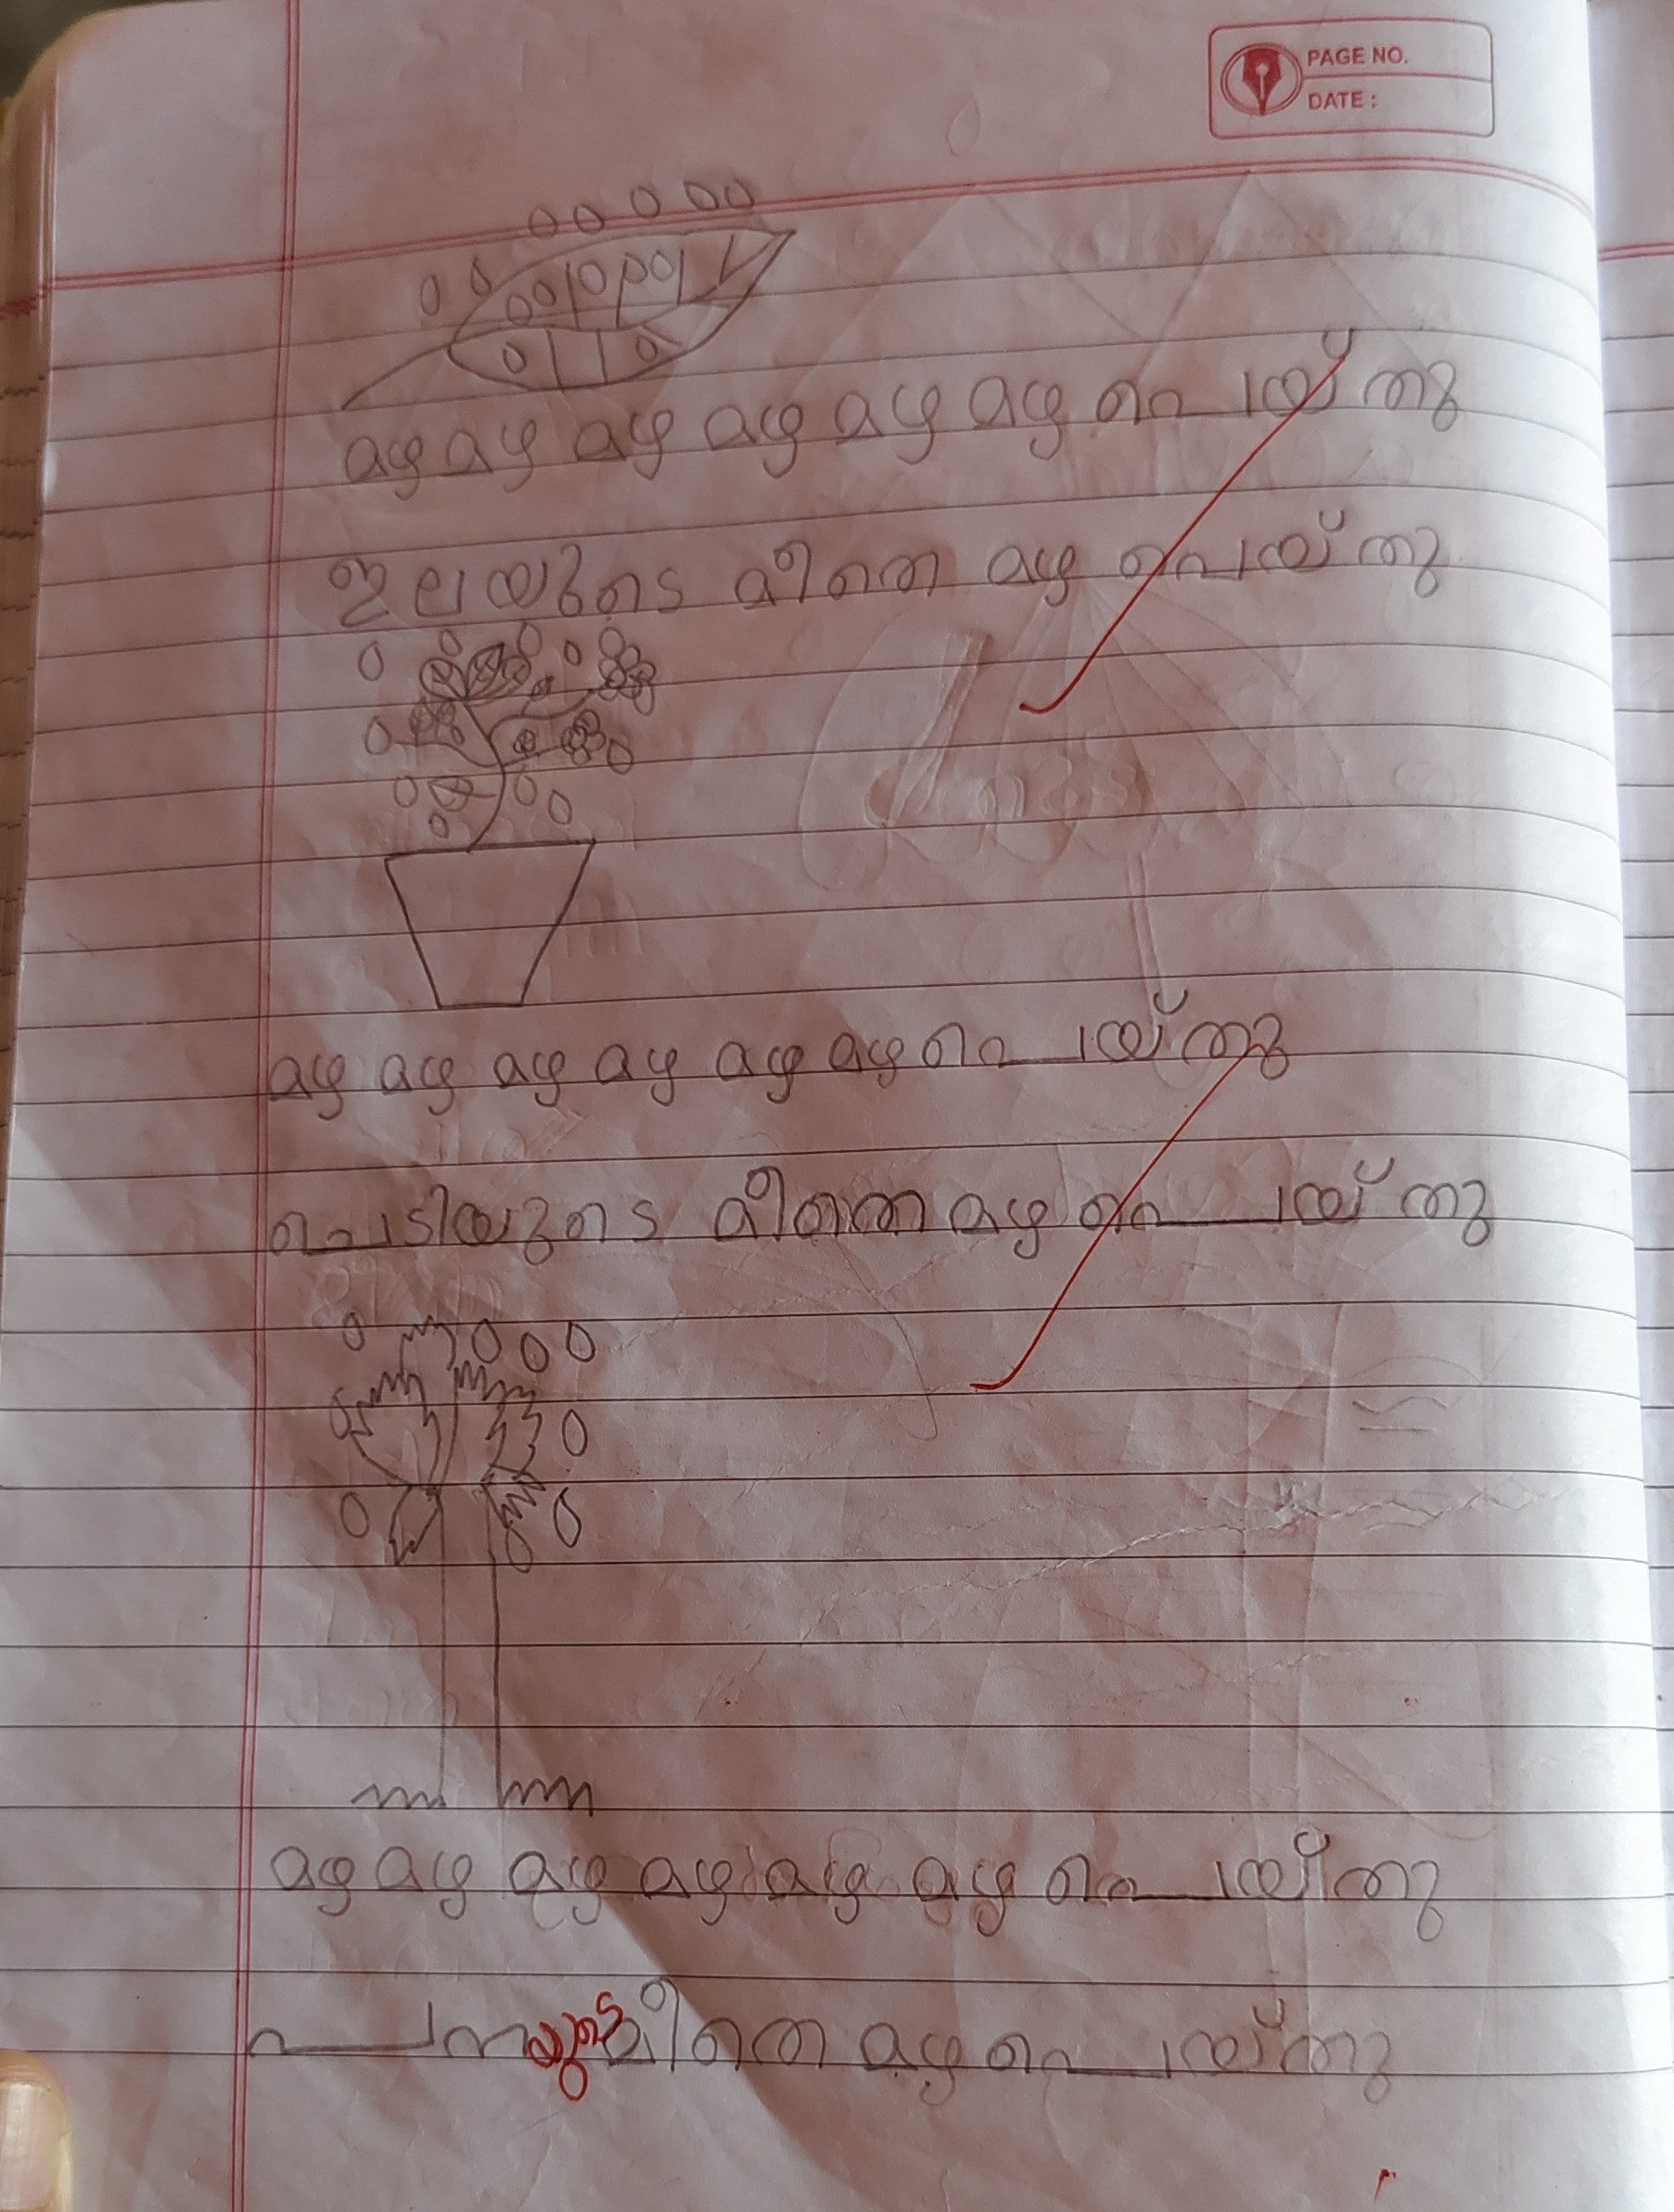 PAGE NO.
DATE :
മഴ മഴ മഴ മഴ മഴ മഴ പെയ്തു
ഇലയുടെ മീതെ മഴ പെയ്തു
മഴ മഴ മഴ മഴ മഴ മഴ പെയ്തു
ചെടിയുടെ മീതെ മഴ പെയ്തു
മഴ മഴ മഴ മഴ മഴ മഴ പെയ്തു
പനയുടെ മീതെ മഴ പെയ്തു